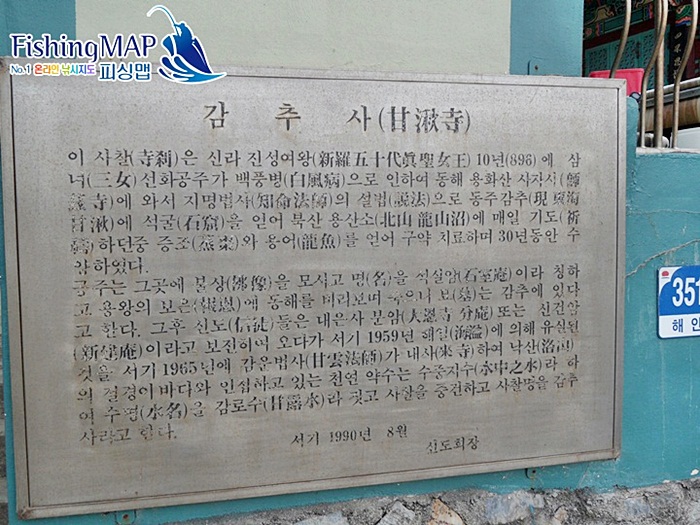 FishingMAP
No.1 온라인 낚시지도 피싱맵
감 추 사(甘湫寺)
이 사찰(寺刹)은 신라 진성여왕(新羅五十代眞聖女王) 10년(896)에 삼
녀(三女)선화공주가 백풍병(白風病)으로 인하여 동해 용화산 사자사(師
寺)에 와서 지명법사(知命法師)의 설법(說法)으로 동주감추(現
湫)에 석굴(石窟)을 얻어 북산 용산소(北山 龍山沼)에 매일 기도(祈
禱)하던중 증조(蒸棗)와 용어(龍魚)를 얻어 구약 치료하며 30년동안 수
하였다.
공주는 그곳에 불상(佛像)을 모시고 명(名)을 석실암(石室庵)이라 칭하
고 용왕의 보은(報恩)에 동해를 바라보며 묘(墓)는 감추에 있다
고 한다. 그후 신도(信徒)들은 대은사 분암(大恩寺 分庵) 또는 신건암
(新建庵)이라고 보전하여 오다가 서기 1959년 해일(海溢)에 의해 유실된
것을 서기 1965년에 감운법사(甘雲法師)가 내사(來寺)하여 낙산(洛山)
의 절경이 바다와 인접하고 있는 천연 약수는 수중지수(水中之水)라 하
여 수명(水名)을 감로수(甘露水)라 짓고 사찰을 중건하고 사찰명을 감추
사라고 한다.
서기 1990년 8월
신도회장
351
해안